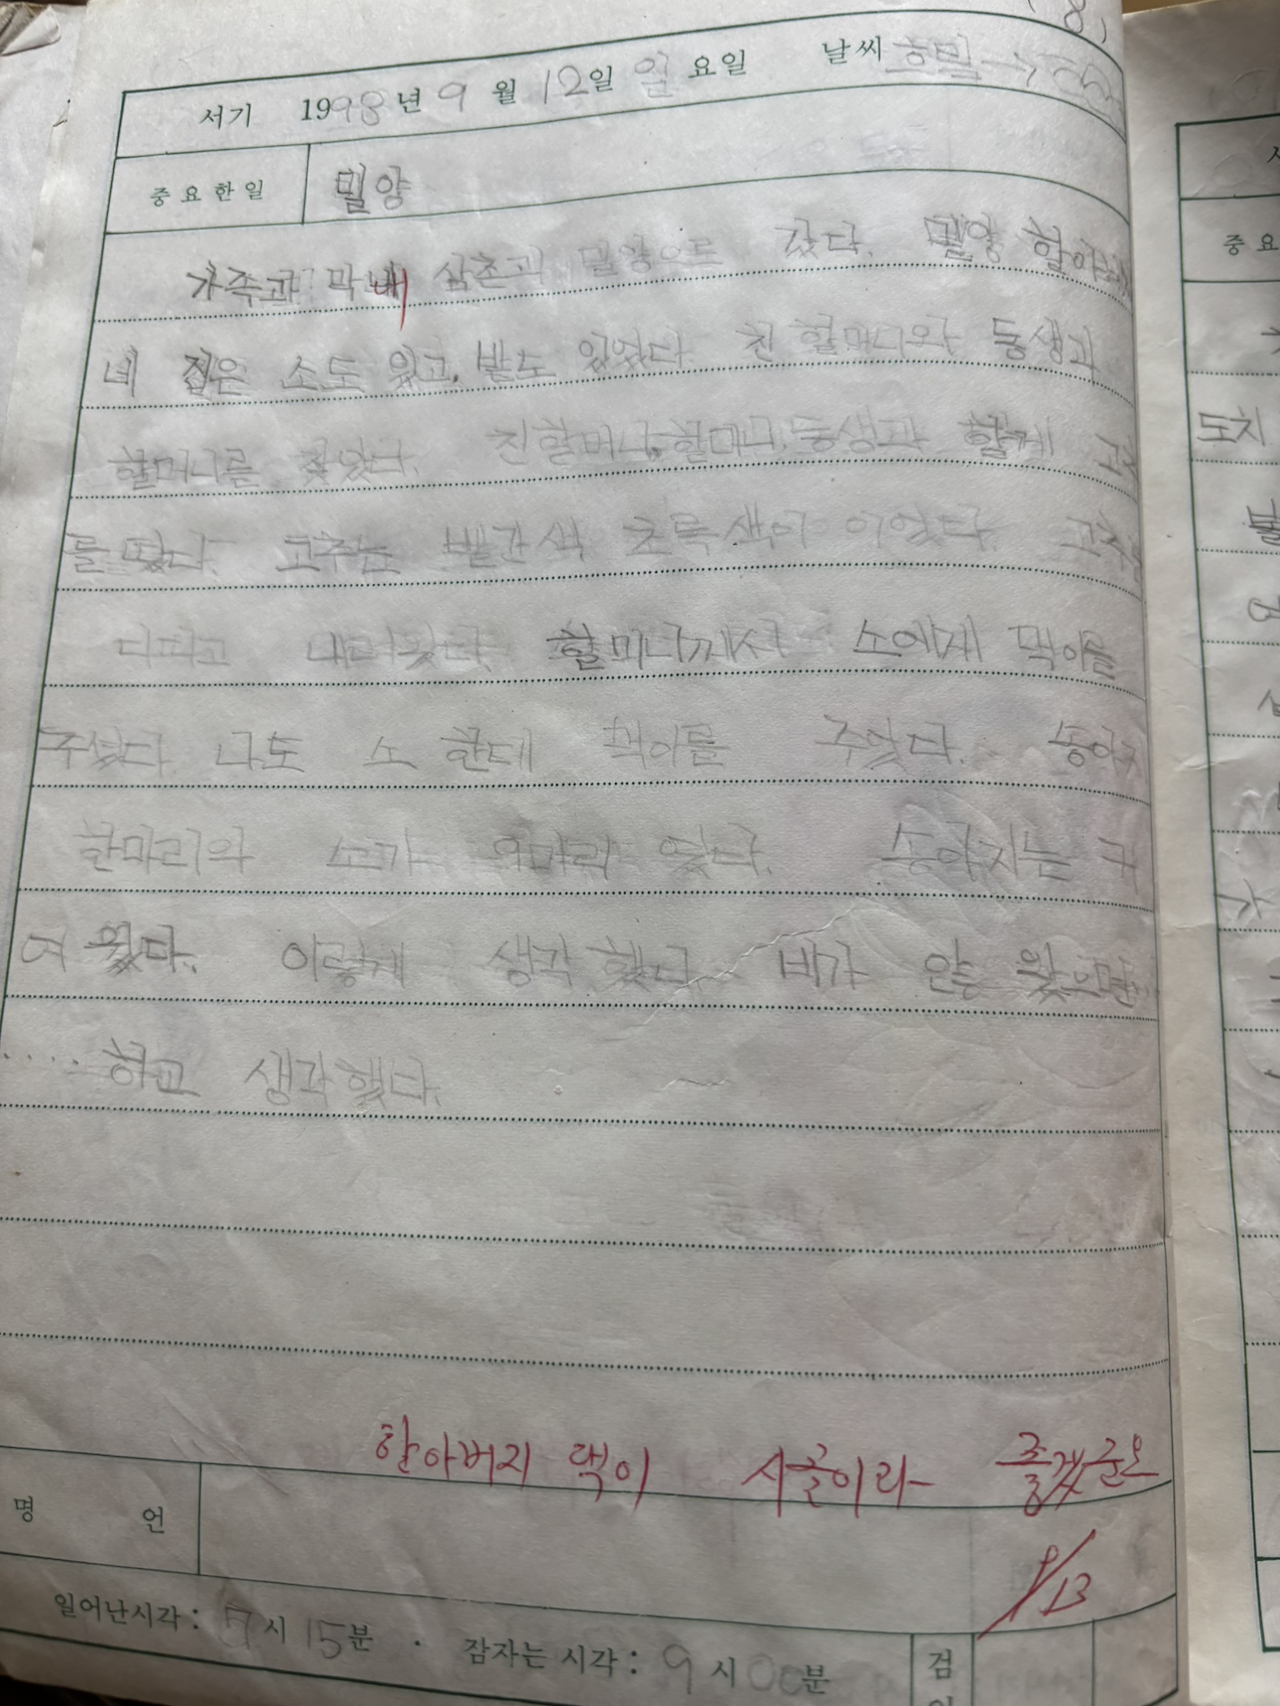 서기 1998년 9월 12일 일요일 날씨 흐림 →
중요한일 밀양
가족과 막내 삼촌과 밀양으로 갔다. 밀양 할아버지
네 집은 소도 있고, 밭도 있었다. 친 할머니와 동생과
할머니를 찾았다. 친할머니, 할머니, 동생과 함께 고추
를 땄다. 고추는 빨간색 초록색이 이었다. 고추를
다따고 내려왔다. 할머니께서 소에게 먹이를
주셨다 나도 소 한테 먹이를 주었다. 송아지
한마리와 소가 여마리 있다. 송아지는 귀
여웠다. 이렇게 생각했다. 비가 안 왔으면
.... 하고 생각했다.
할아버지 댁이 시골이라 좋겠군요
9/13
명 언
일어난시각: 7시 15분 · 잠자는 시각: 9시 00분
검
중요
도치